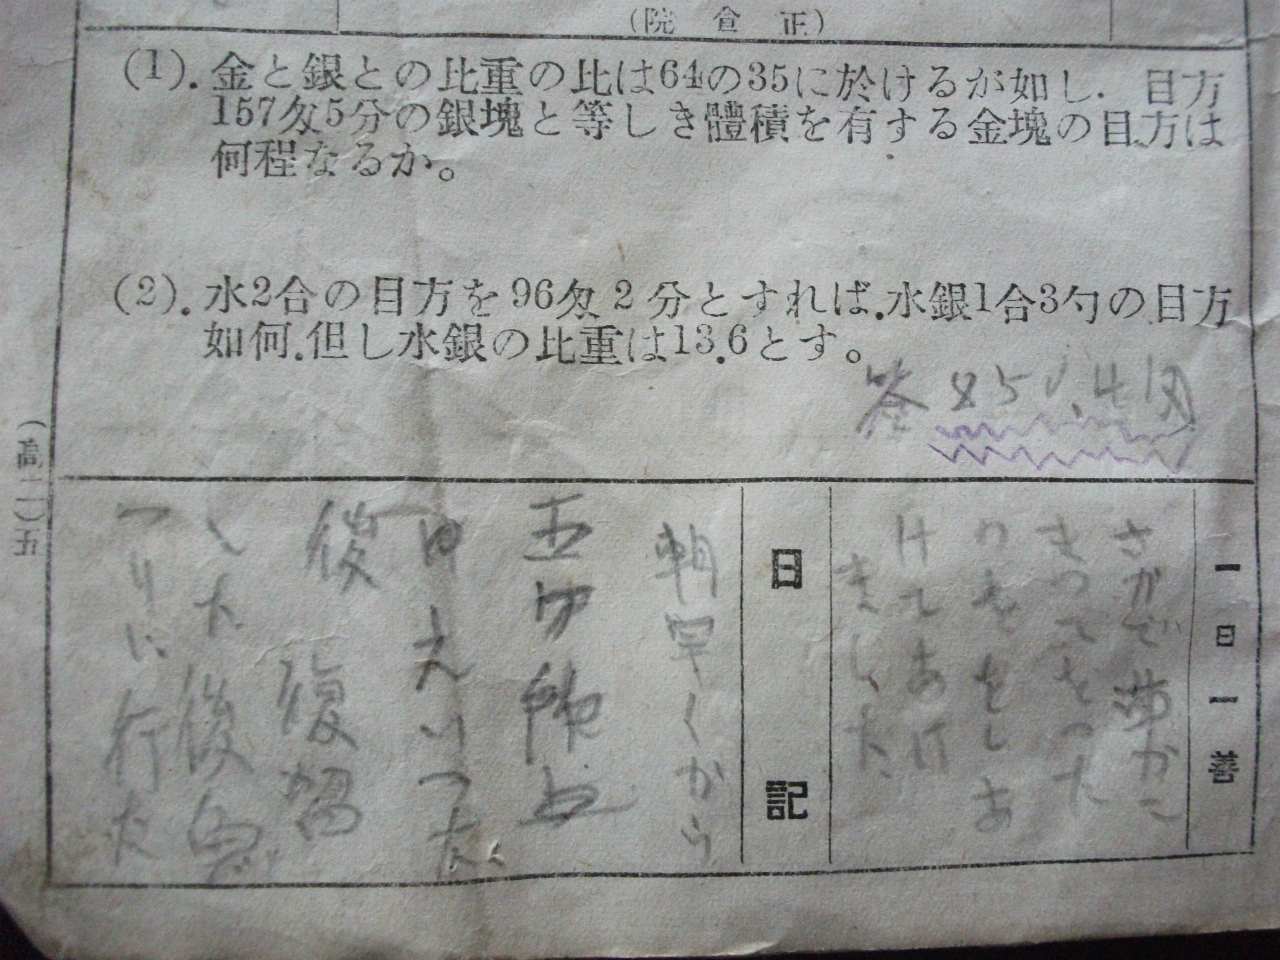 (院倉正)
(1). 金と銀との比重の比は64の35に於けるが如し. 目方
157匁5分の銀塊と等しき體積を有する金塊の目方は
何程なるか。
(2). 水2合の目方を96匁2分とすれば.水銀1合3勺の目方
如何.但し水銀の比重は13.6とす。
答 850.4匁
(高二)五
一日一善
さかで
きつてをつた
のををしあ
けてあげ
ました
日記
朝早くから
後復習
した後
つりに行た